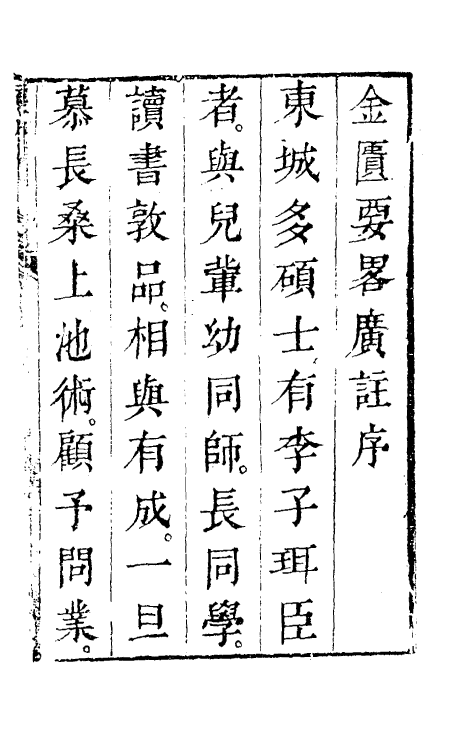 金匱要畧廣註序
東城多碩士有李子珥臣
者。與兒軰幼同師。長同學。
讀書敦品。相與有成。一旦
慕長桑上池術。顧予問業。